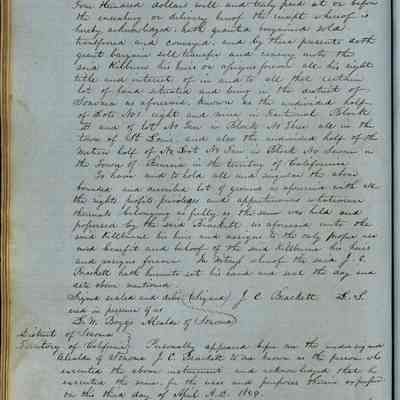 Four Hundred dollars well and truly paid at or before
the ensealing or delivery hereof the receipt whereof is
hereby acknowledged, hath granted bargained sold
transferred and conveyed, and by these presents doth
grant bargain sell transfer and convey unto the
said Kilburne his heirs or assigns forever all his right
title and interest of in and to all that certain
lot of land situated and being in the district of
Sonoma as aforesaid, known as the undivided half
of Lots Nos eight and nine in Fractional Block
and of lot No Ten in Block No Three all in the
town of St Louis and also the undivided half of the
Western half of No Lot No Ten in Block No Seven in
the Town of Benicia in the territory of California
To have and to hold all and singular the above
bounded and described lot of ground as aforesaid with all
the rights profits privileges and appurtenances whatsoever
thereunto belonging as fully as the same was held and
possessed by the said Brackett as aforesaid unto the
said Kilburne his heirs and assigns to the only proper use
and benefit and behoof of the said Kilburne his heirs
and assigns forever In Witness whereof the said J. C.
Brackett hath hereunto set his hand and seal the day and
date above mentioned
Signed sealed and delivd (Signed) J. C. Brackett L. S.
and in presence of us
L. W. Boggs Alcalde of Sonoma
District of Sonoma
Territory of California Personally appeared before me the undersigned
Alcalde of Sonoma J. C. Brackett to me known as the person who
executed the above instrument and acknowledged that he
executed the same, for the uses and purposes therein expressed
on this third day of April A.D. 1849.